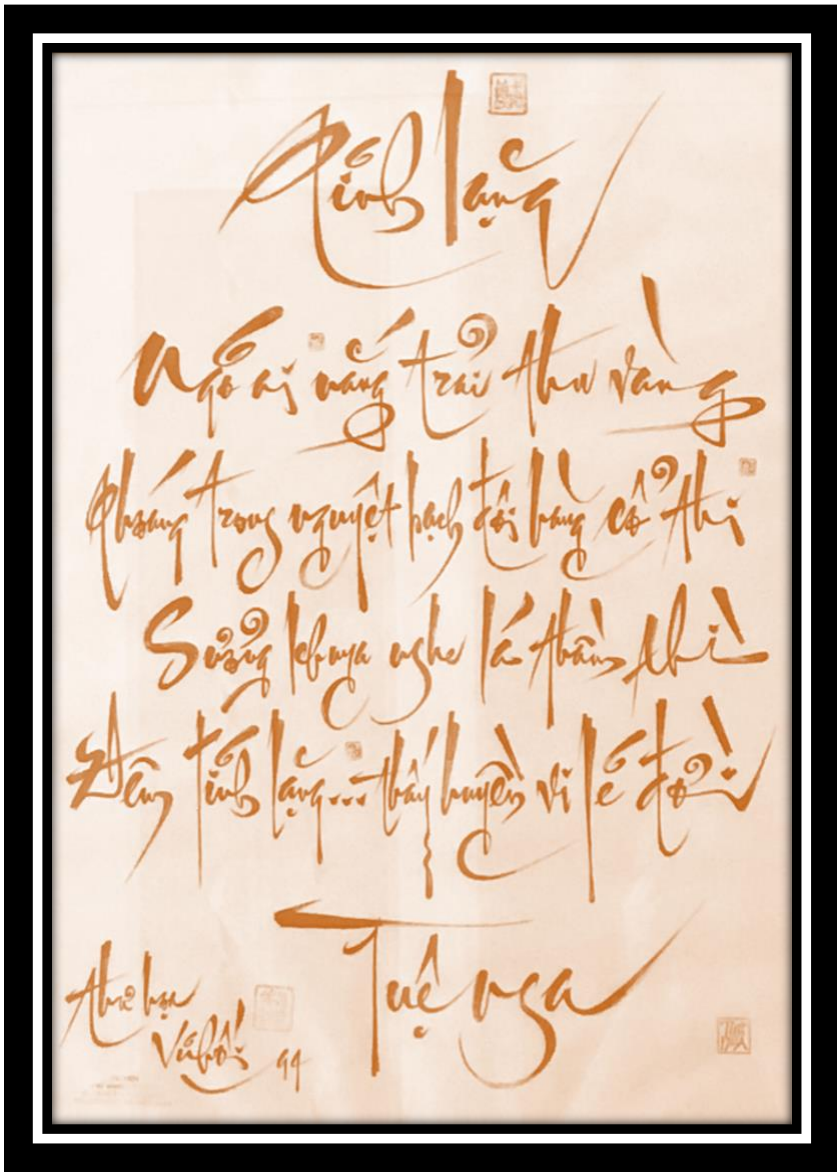 Tĩnh lặng
Ngõ ai nắng trải thơ vàng
Thoáng trong nguyệt bạch đôi hàng cổ thi
Sương khuya nghe lá thầm thì
Đêm tĩnh lặng... thấy huyền vi lẽ đời
Tuệ Nga
Thư họa
Vũ Hối 94